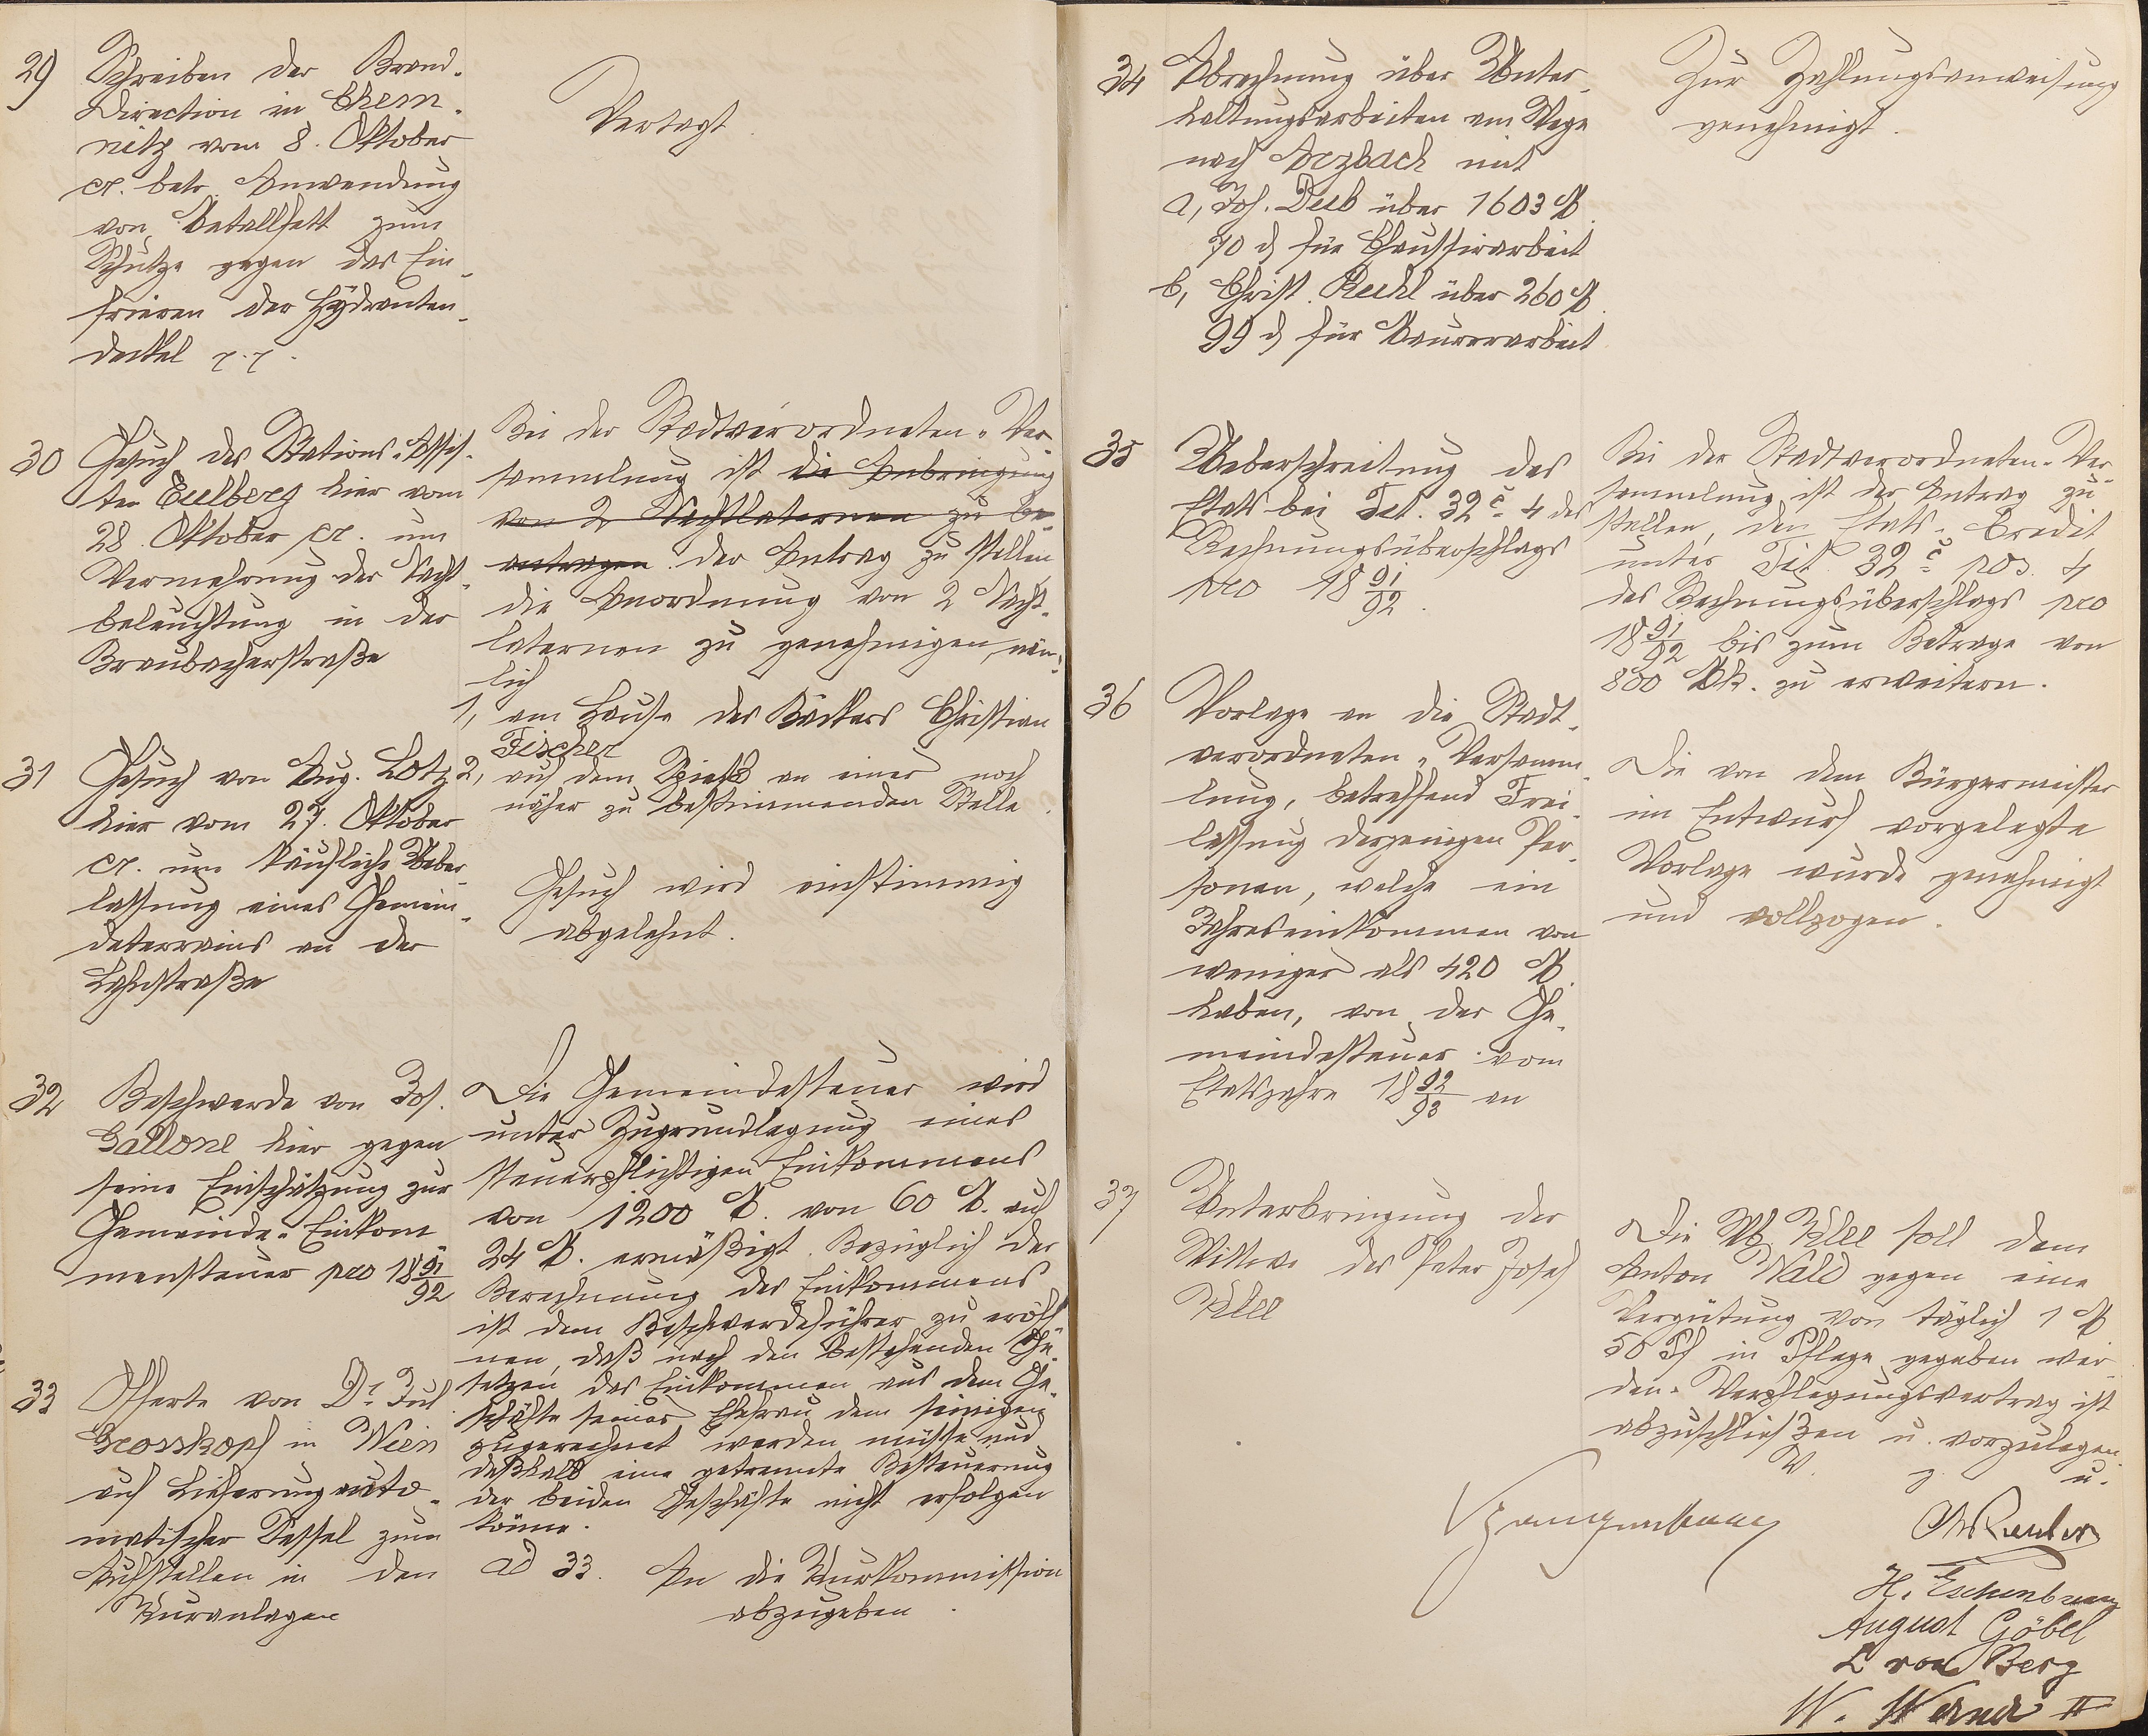 29)
Schreiben der Brand-
Direction in Chem-
nitz vom 8. Oktober
cr. betr. Anwendung
von Metallfett zum
Schutze gegen das Ein-
frieren der Hydranten-
deckel p.p.
Vertagt.
30
Gesuch des Stations-Assis-
ten Eulberg hier vom
28. Oktober cr. um
Vermehrung der Nacht-
beleuchtung in der
Braubacherstraße
Bei der Stadtverordneten-Ver-
sammlung ist die Anbringung
von 2 Nachtlaternen zu be-
antragen der Antrag zu stellen
die Anordnung von 2 Nacht-
laternen zu genehmigen, näm-
lich
1, am Hause des Bäckers Christian
Fischer
2, auf dem Spieß an einer noch
näher zu bestimmenden Stelle.
31
Gesuch von Aug. Lotz
hier vom 27. Oktober
cr. um käufliche Ueber-
lassung eines Gemein-
deterrains an der
Lahnstraße
Gesuch wird einstimmig
abgelehnt.
32
Beschwerde von Jos.
Gallone hier gegen
seine Einschätzung zur
Gemeinde-Einkom
mensteuer pro 18 91/92
Die Gemeindesteuer wird
unter Zugrundlegung eines
steuerpflichtigen Einkommens
von 1200 M. von 60 M. auf
24 M. ermäßigt. Bezüglich der
Berechnung des Einkommens
ist dem Beschwerdeführer zu eröff
nen, daß nach den bestehenden Ge-
setzen das Einkommen aus dem Ge-
schäfte seiner Ehefrau dem seinigen
zugerechnet werden müsse und
deßhalb eine getrennte Besteuerung
der beiden Geschäfte nicht erfolgen
könne.
33
Offerte von Dr. Jul.
Grosskopf in Wien
auf Lieferung auto-
matischer Sessel zum
Aufstellen in den
Kuranlagen
ad 33. An die Kurkommission
abzugeben.
34
Abrechnung über Unter-
haltungsarbeiten am Wege
nach Arzbach mit
a, Joh. Deub über 1603 M.
70 d für Chaussirarbeit
b, Christ. Reuhl über 260 M.
99 d für Maurerarbeit
Zur Zahlungsanweisung
genehmigt.
35
Ueberschreitung des
Etats bei Tit. 32 c. 4 des
Rechnungsüberschlags
pro 18 91/92.
Bei der Stadtverordneten-Ver-
sammlung ist der Antrag zu
stellen, den Etats-Credit
unter Tit. 32 c pos. 4
des Rechnungsüberschlags pro
18 91/92 bis zum Betrage von
800 Mk. zu erweitern.
36
Vorlage an die Stadt-
verordneten-Versamm-
lung, betreffend Frei-
lassung derjenigen Per-
sonen, welche ein
Jahreseinkommen von
weniger als 420 M.
haben, von der Ge-
meindesteuer vom
Etatsjahre 18 92/93 an
Die von dem Bürgermeister
im Entwurf vorgelegte
Vorlage wurde genehmigt
und vollzogen.
37
Unterbringung der
Wittwe des Peter Josef
Klee
Die Wb. Klee soll dem
Anton Wald gegen eine
Vergütung von täglich 1 M
50 Pf in Pflege gegeben wer-
den. Verpflegungsvertrag ist
abzuschließen u. vorzulegen.
V. g. u.
H. Eschenbrenner
August Göbel
L von Berg
W. Werner II